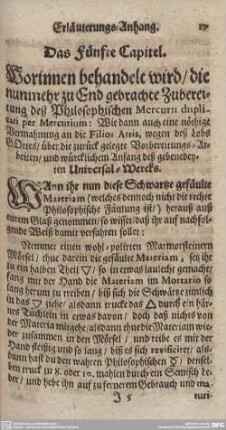 Erläuterungs-Anhang. 17
Das Fünfte Capitel.
Worinnen behandelt wird / die
nunmehr zu End gebrachte Zuberei-
tung deß Philosophischen Mercurii dupli-
cati per Mercurium: Wie dann auch eine nöhtige
Vermahnung an die Filios Artis, wegen deß Lobs
GOttes / über die zurück gelegte Vorbereitungs-Ar-
beiten / und würcklichem Anfang deß gebenedey-
ten Universal-Wercks.
WAnn ihr nun diese Schwartze gefäulte
Materiam (welches dennoch nicht die rechte
Philosophische Fäulung ist /) herauß auß
eurem Glaß genommen / so wisset daß ihr auf nachfol-
gende Weiß damit verfahren sollet:
Nemmet einen wohl-polirten Marmorsteinern
Mörsel / thue darein die gefäulte Materiam, setz ihr
zu ein halben Theil ▽ / so in etwas laulecht gemacht /
fang mit der Hand die Materiam im Mortario so
lang herum zu treiben / biß sich die Schwärtze zimlich
in das ▽ ziehe / alsdann truck das durch ein hä-
rines Tüchlein in etwas davon / doch daß nichts von
der Materia mitgehe / alsdann thue die Materiam wie-
der zusammen in den Mörsel / und reibe es mit der
Hand fleissig und so lang / biß es sich revificirt / als-
dann hast du den wahren Philosophischen ☿ / densel-
ben truck zu 8. oder 10. mahlen durch ein Semisch Le-
der / und hebe ihn auf zu fernerem Gebrauch und ma-
J 5 turi-